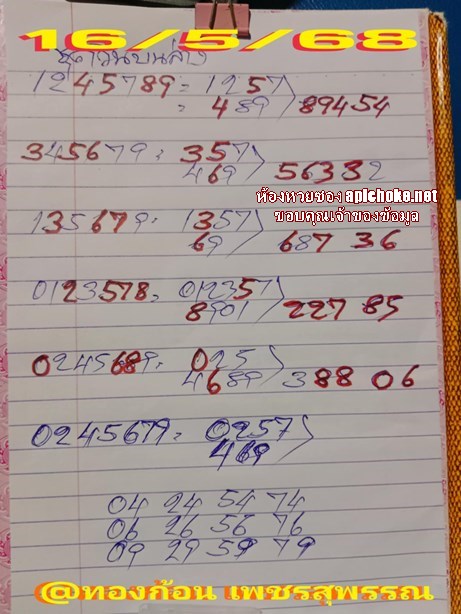 16/5/68
ชุดวนบนล่าง
1245789 = 1257
= 489 > 89454
345679 : 357
469 > 56332
ห้องหวยซอง apichoke.net
ขอบคุณเจ้าของข้อมูล
135679 : 1357
69 > 687 36
0123578 = 012357
8901 > 227 85
0245689 : 025
4689 > 388 06
0245679 = 0257
469 >
04 24 54 74
06 26 56 76
09 29 59 79
@ทองก้อน เพชรสุพรรณ